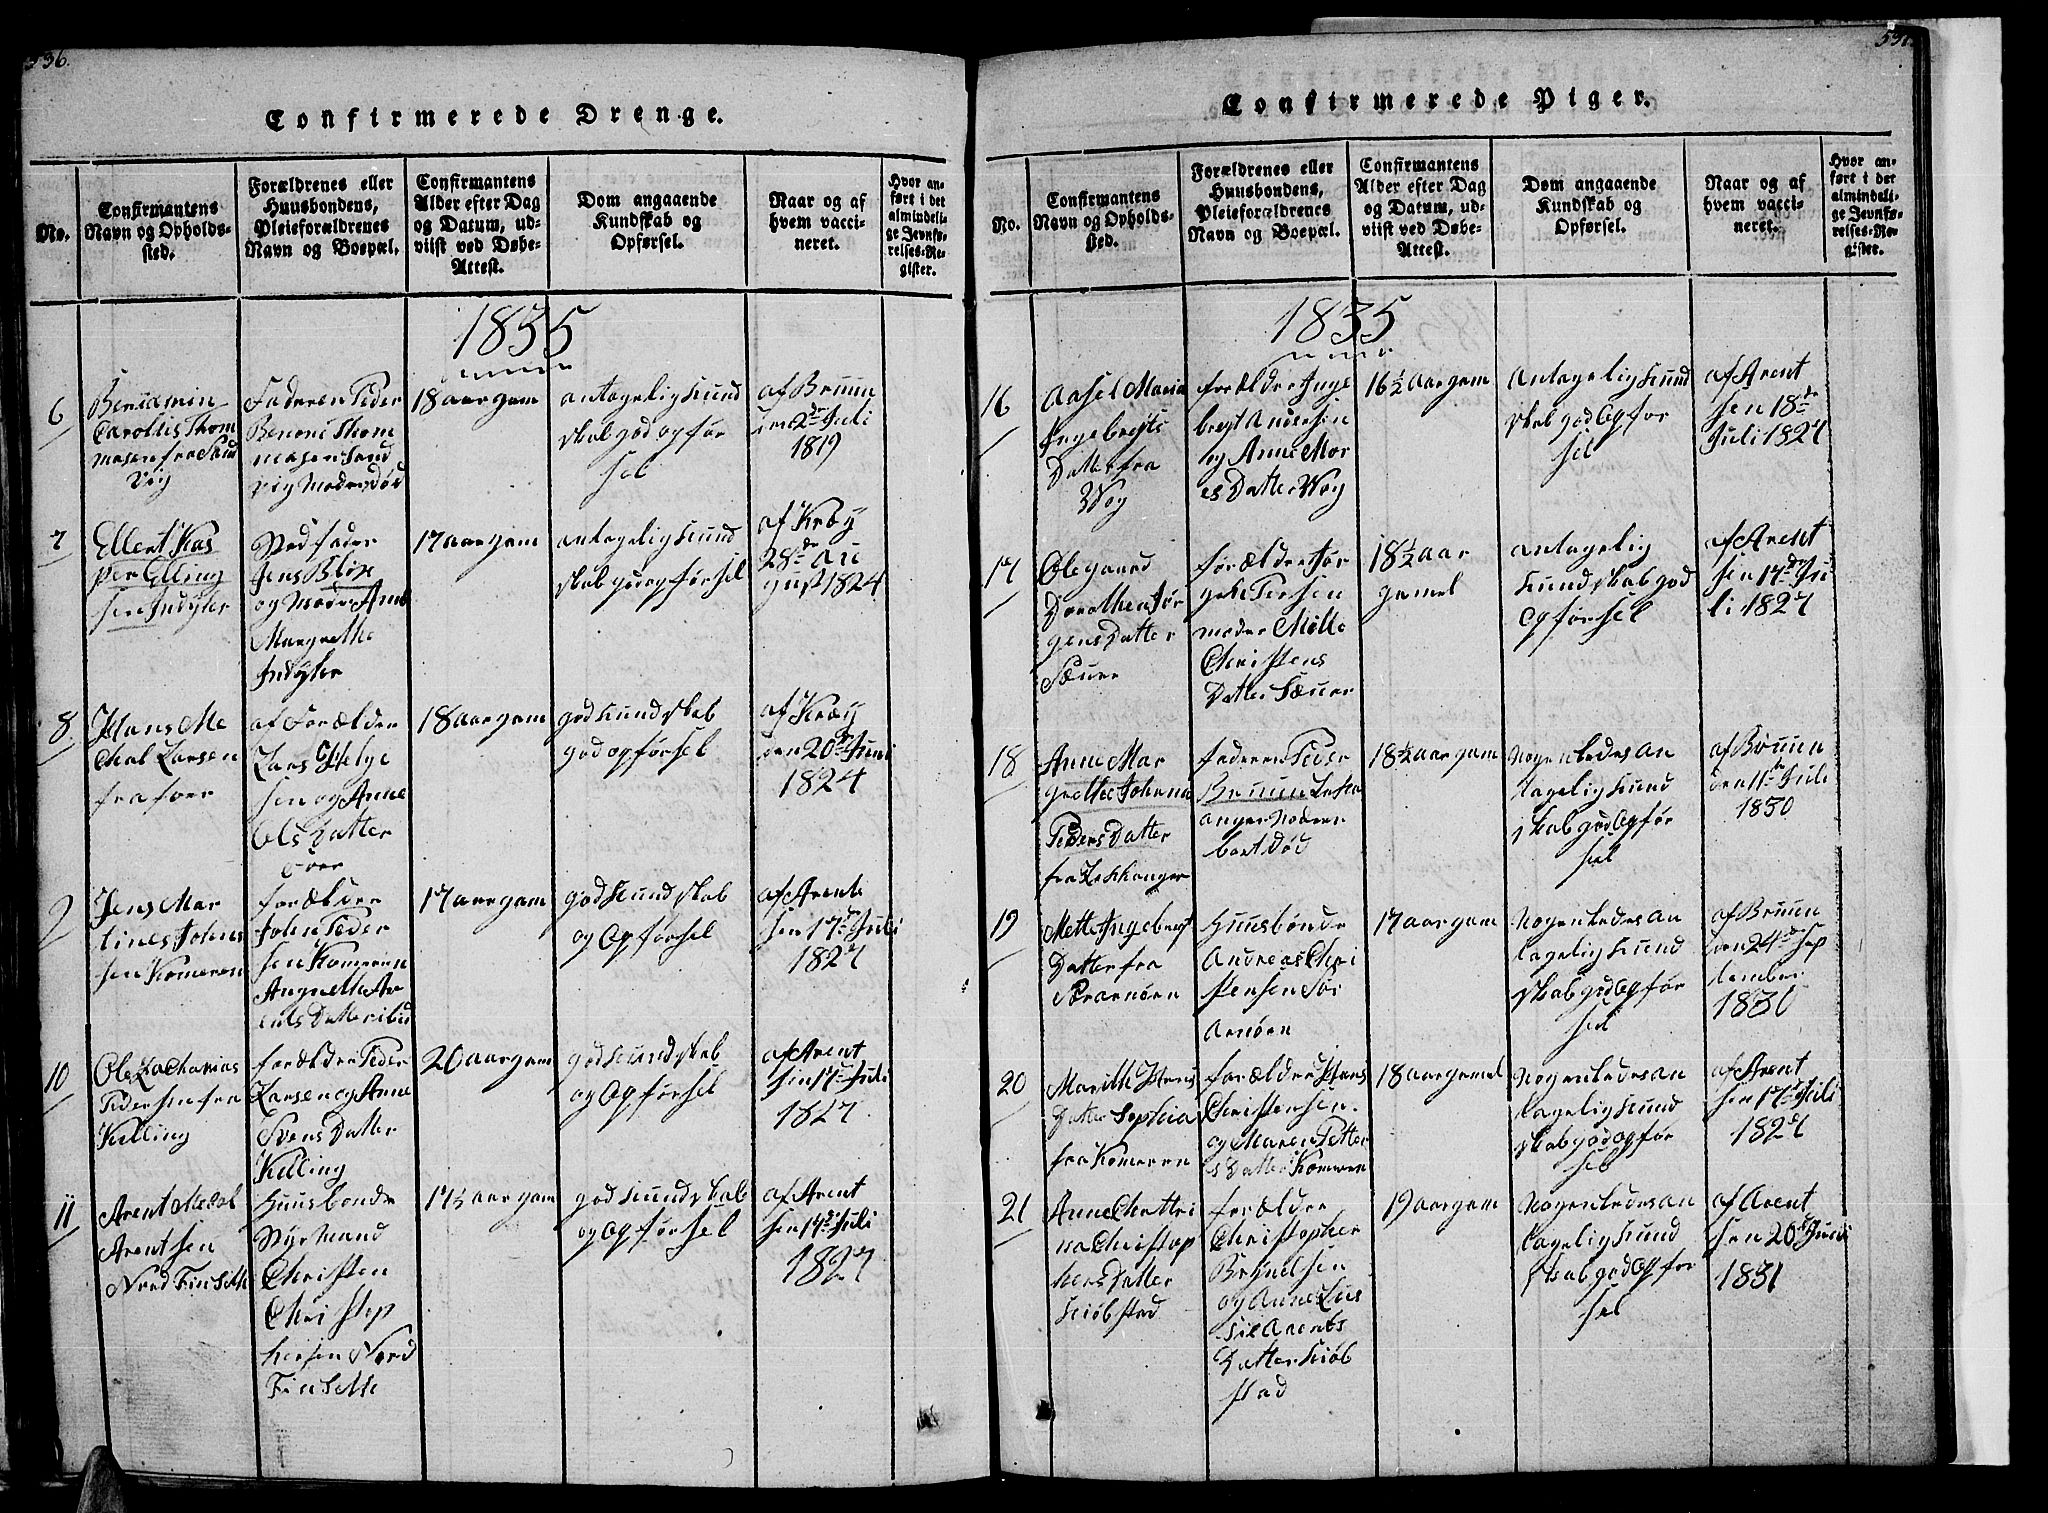 536.
Confirmerede Drenge.
No.
Confirmantens
Navn og Opholds-
sted.
Forældrenes eller
Huusbondens,
Pleieforældrenes
Navn og Boepæl.
Confirmantens
Alder efter Dag
og Datum, ud-
viist ved Døbe-
Attest.
Dom angaaende
Kundskab og
Opførsel.
Naar og af
hvem vacci-
neret.
Hvor an-
ført i det
almindeli-
ge Jevnfø-
relses-Re-
gister.
1835
6
Beniamin
Carolius Thom
masen fra Sand
vig
Faderen Peder
Benoni Thom
masen Sand
vig Moder død
18 aar gam
antagelig Kund
skab god opfør
sel
af Bruun
den 2de Juli
1819
7
Ellent Kas
per Elling
sen Indyhr
Sted fader
Jens Blix
og Moder Anne
Margrethe
Indyhr
17 aar gam
antagelig Kund
skab god opførsel
af Krøy
28de Au
gust 1824
8
Hans Me
chal Larsen
fra foer
af Forælder
Lars Helge
sen og Anne
Ols Datter
foer
18 aar gam
god Kundskab
god opførsel
af Krøy
den 20de Juni
1824
9
Jens Mar
tines Johns
sen Komeren
forælder
John Peder
sen Komeren
Angnethe Ar
ents Datter ibid
17 aar gam
god Kundskab
og Opførsel
af Arent
sen 17de Juli
1827
10
Ole Zacharias
Pedersen fra
Kelling
forælder Peder
Larsen og Anne
Svens Datter
Kelling
20 aar gam
god Kundskab
og Opførsel
af Arent
sen 17de Juli
1827
11
Arent
Arentsen
Nord Finsethe
Huusbonde
Styrmand
Christen
Christop
hersen Nord
Finsethe
17½ aar gam
god Kundskab
og Opførsel
af Arent
sen 14de Juli
1827
537
Confirmerede Piger.
No.
Confirmantens
Navn og Opholds-
sted.
Forældrenes eller
Huusbondens,
Pleieforældrenes
Navn og Boepæl.
Confirmantens
Alder efter Dag
og Datum, ud-
viist ved Døbe-
Attest.
Dom angaaende
Kundskab og
Opførsel.
Naar og af
hvem vacci-
neret.
Hvor an-
ført i det
almindeli-
ge Jevnfø-
relses-Re-
gister.
1835
16
Aasel Maria
Ingebregts
Datter fra
Wog
forælder Inge
bregt Andersen
og Anne Mor
es Datter Wog
16½ aar gam
Antagelig Kund
skab god Opfør
sel
af Arent
sen 18de
Juli 1827
17
Olegaard
Dorothea Jør
gens Datter
Sæuer
forælder Jør
gen Persen
moder Mølle
Christens
Datter Sæuer
18½ aar
gamel
antagelig
Kundskab god
Opførsel
af Arent
sen 17de Ju
li 1827
18
Anne Mar
grethe Johana
Peders Datter
fra Lekhanger
faderen Peder
Bruun Lekha
anger Moderen
bort Død
18½ aar gam
Nogenledes An
tagelig Kund
skab god Opfør
sel
af Bruun
den 11te Juli
1830
19
Mette Ingebregt
Datter fra
Sørarnøen
Huusbonde
Andreas Chri
stensen Sør
Arnøen
17 aar gam
Nogenledes An
tagelig Kund
skab god Opfør
sel
af Bruun
den 24de Sep
tember
1830
20
Marithe Hens
Datter Sophia
fra Komeren
forælder Hans
Christensen
og Maren Petter
s Datter Komeren
18 aar gamel
Nogenledes An
tagelig Kund
skab god Opfør
sel
af Arent
sen 17de Juli
1827
21
Anne Chattri
na Christop
hers Datter
Kiøbstad
forælder
Christopher
Bryndelsen
og Anne Lus
sie Arents
Datter Kiøb
stad
19 aar gam
Nogenledes An
tagelig Kund
skab god Opfør
sel
af Arent
sen 20de Juni
1831